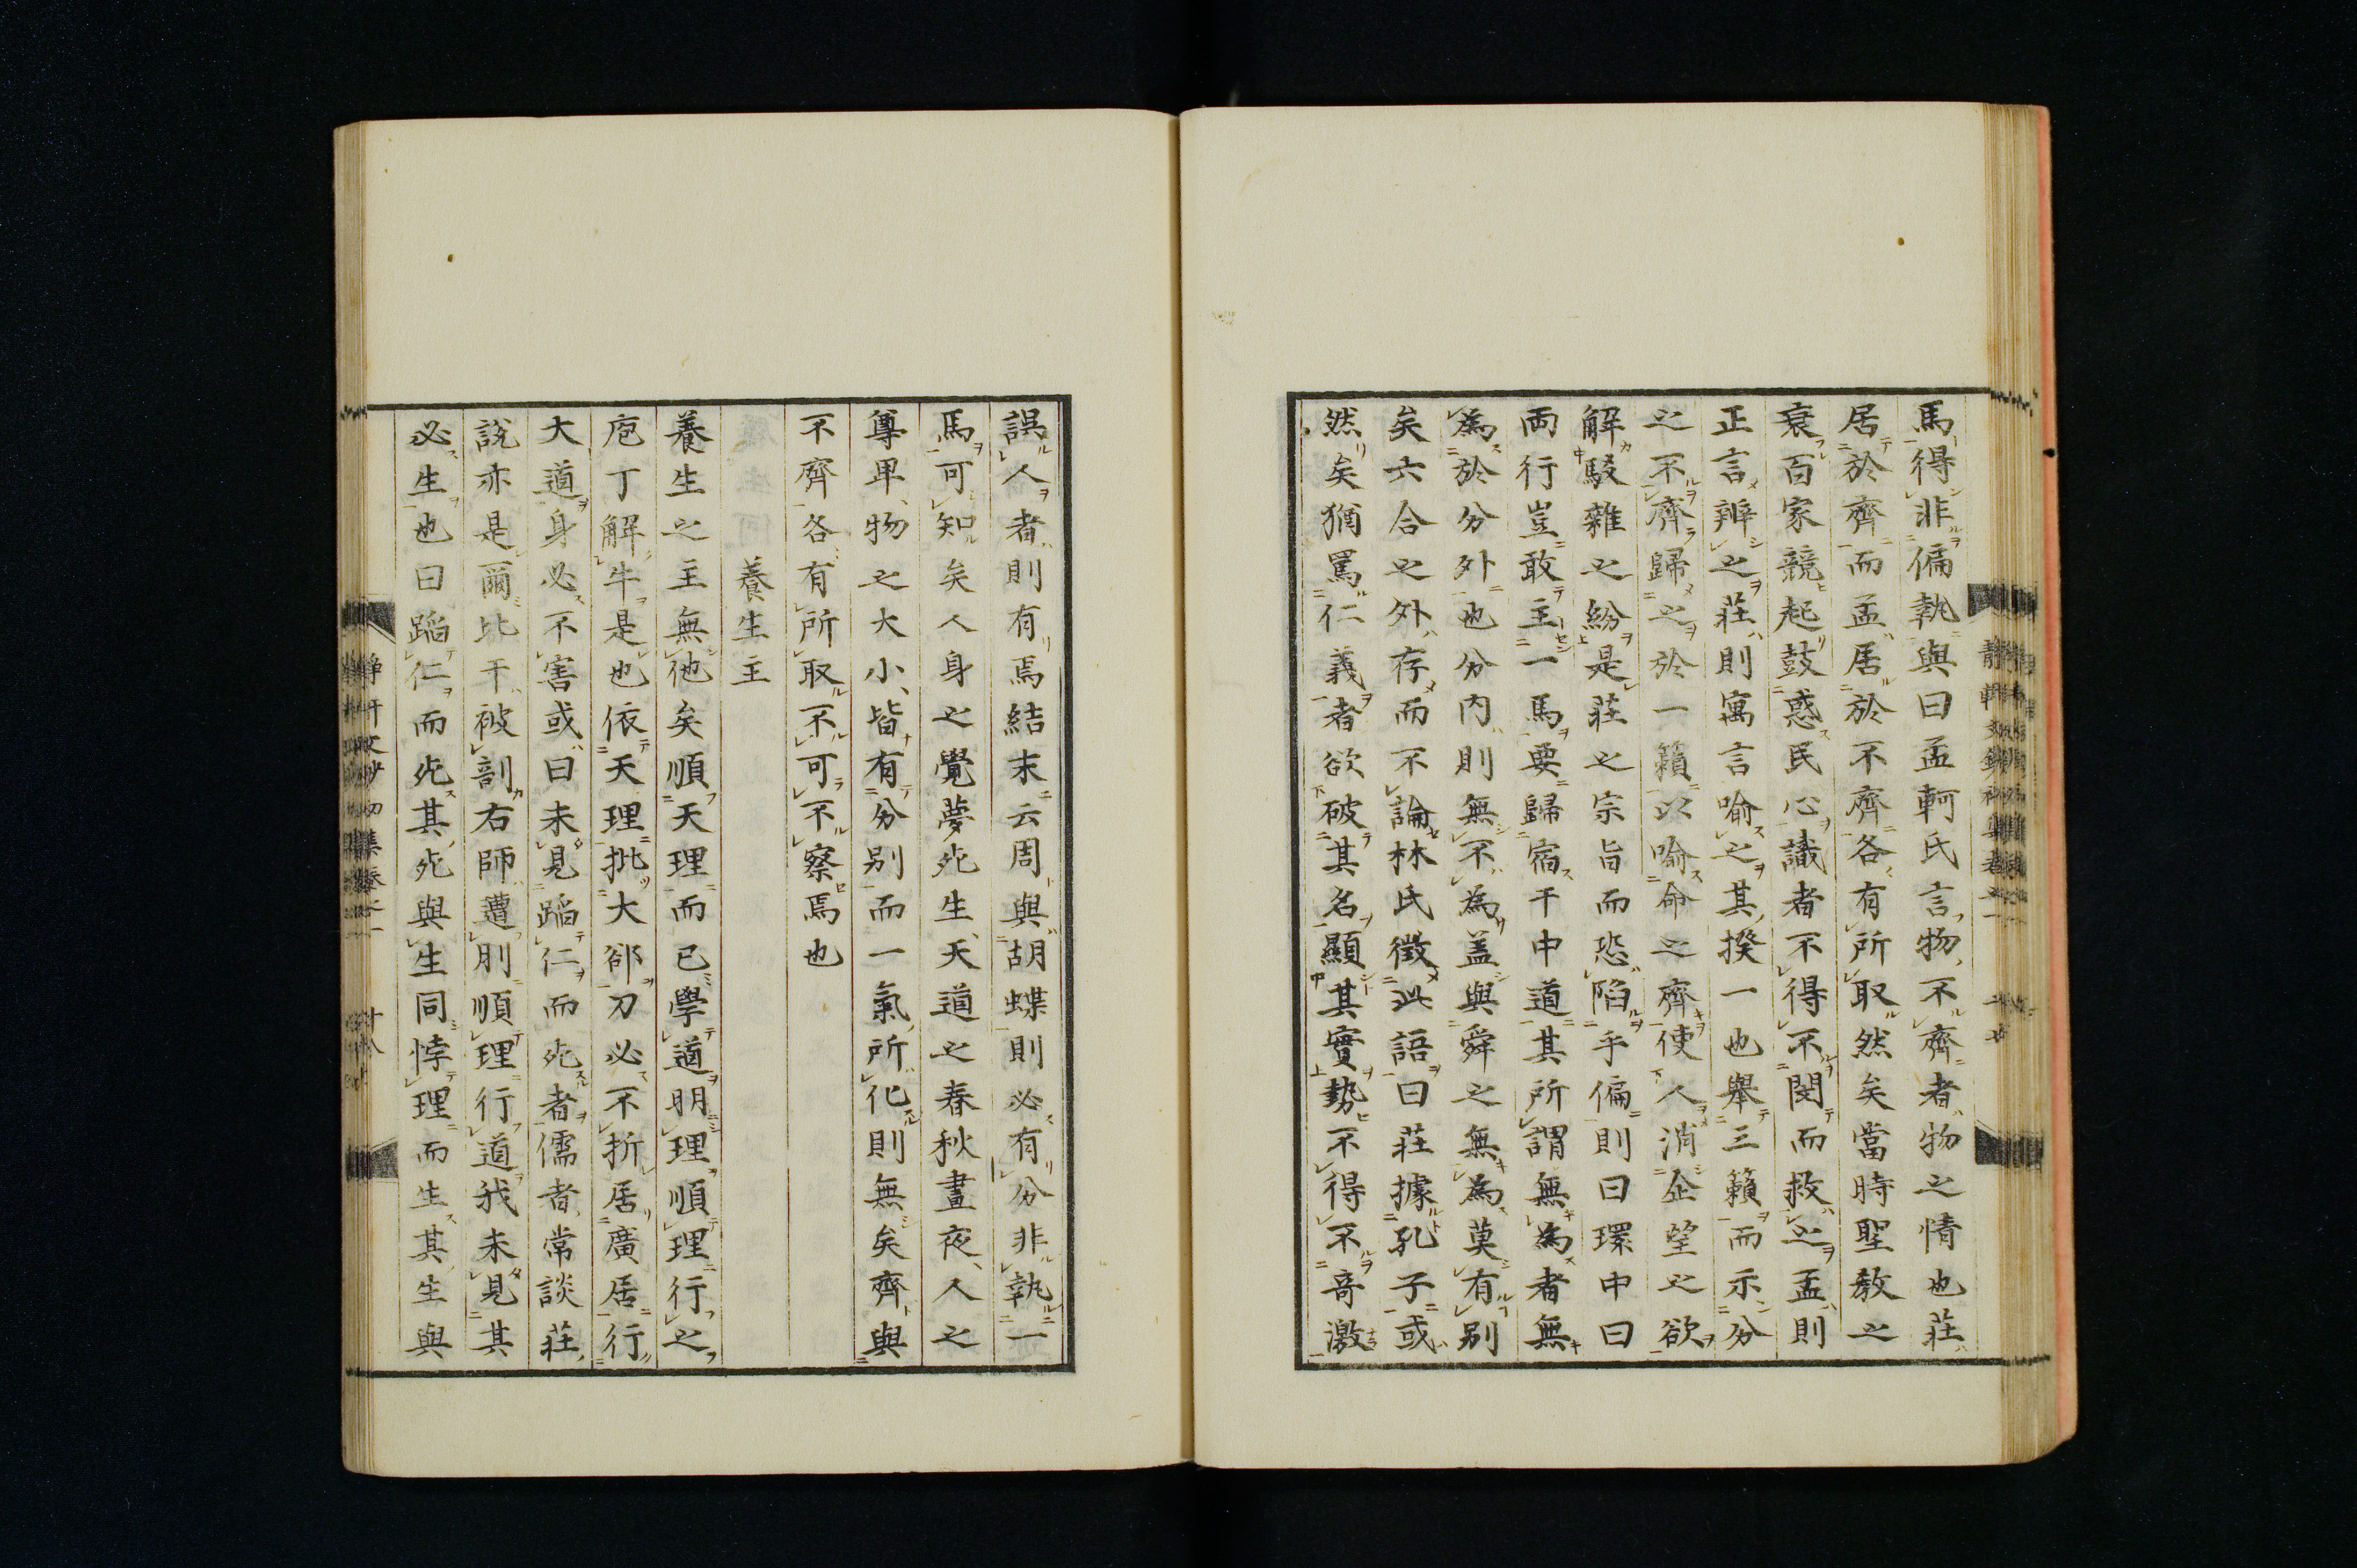 馬得非偏執與曰孟軻氏言物不齊者物之情也莊
居於齊而孟居於不齊各有所取然矣當時聖教之
衰百家競起鼓惑民心識者不得不閔而救之孟則
正言辨之莊則寓言喻之其揆一也舉三籟而示分
之不齊歸之於一籟以喻命之齊使人消企望之欲
解駁雜之紛是莊之宗旨而恐陷乎偏則曰環中曰
両行豈敢主一馬要歸宿于中道其所謂無為者無
為於分外也分内則無不為蓋與舜之無為莫有别
矣六合之外存而不論林氏徵此語曰莊據孔子或
然矣猶罵仁義者欲破其名顯其實勢不得不奇激
誤人者則有焉結末云周與胡蝶則必有分非執一
馬可知矣人身之覺夢死生天道之春秋晝夜人之
尊卑物之大小皆有分别而一氣所化則無矣齊與
不齊各有所取不可不察焉也
養生主
養生之主無他矣順天理而已學道明理順理行之
庖丁解牛是也依天理批大郤刀必不折居廣居行
大道身必不害或曰未見蹈仁而死者儒者常談莊
說亦是爾比干被剖右師遭刖順理行道我未見其
必生也曰蹈仁而死其死與生同悖理而生其生與